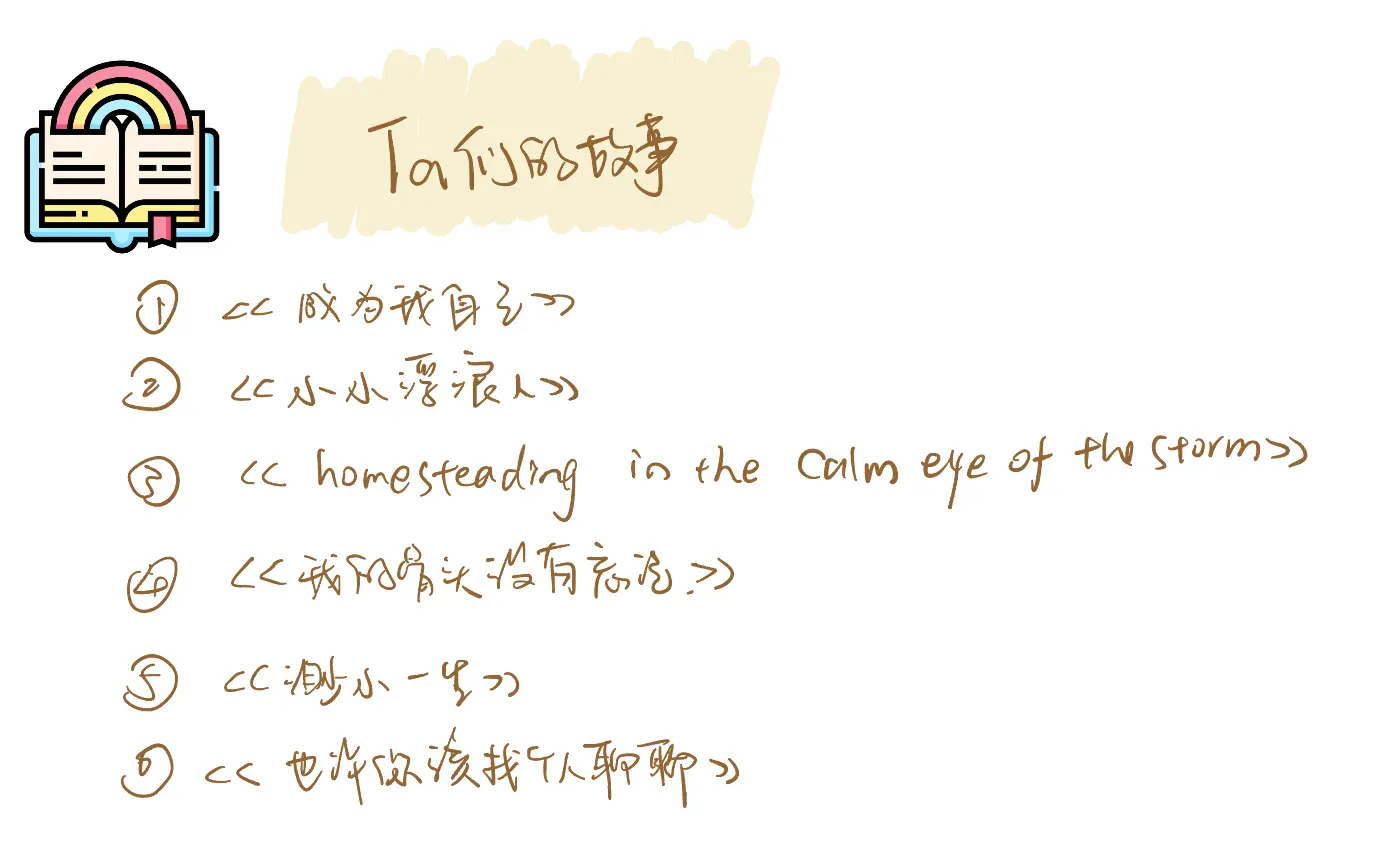 Ta们的故事
① <<成为我自己>>
② <<小小浮浪人>>
③ <<homesteading in the calm eye of the storm>>
④ <<我的骨头没有忘记>>
⑤ <<渺小一生>>
⑥ <<也许你该找个人聊聊>>